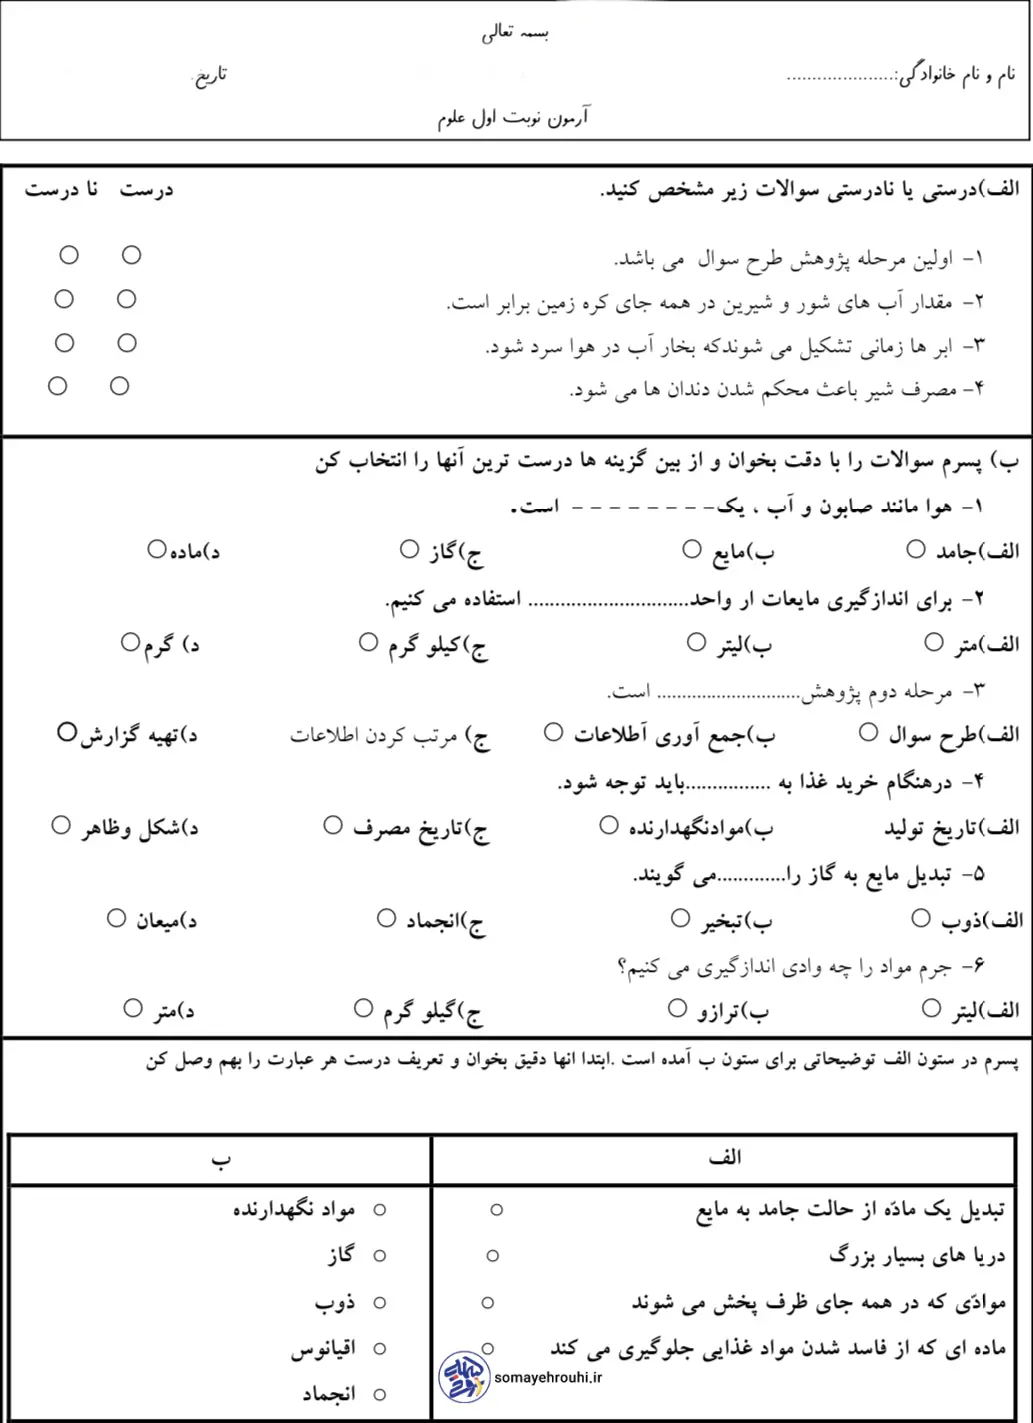 بسمه تعالی
نام و نام خانوادگی:..................... تاریخ:
آزمون نوبت اول علوم
الف)درستی یا نادرستی سوالات زیر مشخص کنید. درست نا درست
۱- اولین مرحله پژوهش طرح سوال می باشد.
۲- مقدار آب های شور و شیرین در همه جای کره زمین برابر است.
۳- ابر ها زمانی تشکیل می شوندکه بخار آب در هوا سرد شود.
۴- مصرف شیر باعث محکم شدن دندان ها می شود.
ب) پسرم سوالات را با دقت بخوان و از بین گزینه ها درست ترین آنها را انتخاب کن
۱- هوا مانند صابون و آب ، یک- - - - - - - - است.
الف)جامد ب)مایع ج)گاز د)ماده
۲- برای اندازگیری مایعات ار واحد.............................. استفاده می کنیم.
الف)متر ب)لیتر ج)کیلو گرم د) گرم
۳- مرحله دوم پژوهش........................... است.
الف)طرح سوال ب)جمع آوری آطلاعات ج) مرتب کردن اطلاعات د)تهیه گزارش
۴- درهنگام خرید غذا به ................باید توجه شود.
الف)تاریخ تولید ب)موادنگهدارنده ج)تاریخ مصرف د)شکل وظاهر
۵- تبدیل مایع به گاز را.............می گویند.
الف)ذوب ب)تبخیر ج)انجماد د)میعان
۶- جرم مواد را چه وادی اندازگیری می کنیم؟
الف)لیتر ب)ترازو ج)گیلو گرم د)متر
پسرم در ستون الف توضیحاتی برای ستون ب آمده است .ابتدا انها دقیق بخوان و تعریف درست هر عبارت را بهم وصل کن
الف ب
تبدیل یک مادّه از حالت جامد به مایع مواد نگهدارنده
دریا های بسیار بزرگ گاز
موادّی که در همه جای ظرف پخش می شوند ذوب
ماده ای که از فاسد شدن مواد غذایی جلوگیری می کند اقیانوس
somayehrouhi.ir
انجماد